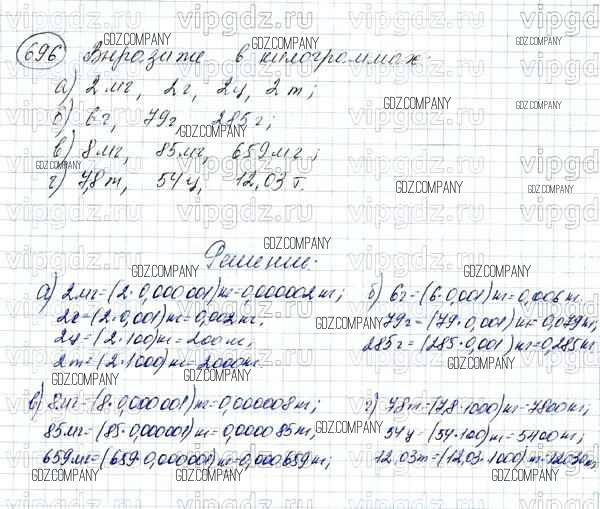 696 Выразите в килограммах:
а) 2 мг, 2г, 2ц, 2 т;
б) 6г, 79г, 285г;
в) 8мг, 85мг, 659мг;
г) 7,8т, 54ц, 12,03т.
Решение.
а) 2мг=(2·0,000001)кг=0,000002кг;
2г=(2·0,001)кг=0,002кг;
2ц=(2·100)кг=200кг;
2т=(2·1000)кг=2000кг.
б) 6г=(6·0,001)кг=0,006кг
79г=(79·0,001)кг=0,079кг;
285г=(285·0,001)кг=0,285кг
в) 8мг=(8·0,000001)кг=0,000008кг;
85мг=(85·0,000001)кг=0,000085кг;
659мг=(659·0,000001)кг=0,000659кг;
г) 7,8т=(7,8·1000)кг=7800кг;
54ц=(54·100)кг=5400кг;
12,03т=(12,03·1000)кг=12030кг,
GDZ.COMPANY
vipgdz.ru